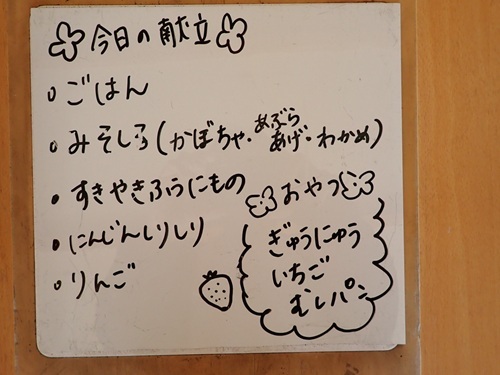 今日の献立
・ごはん
・みそしる(かぼちゃ・あぶらあげ・わかめ)
・すきやきふうにもの
・にんじんしりしり
・りんご
おやつ
ぎゅうにゅう
いちご
むしパン